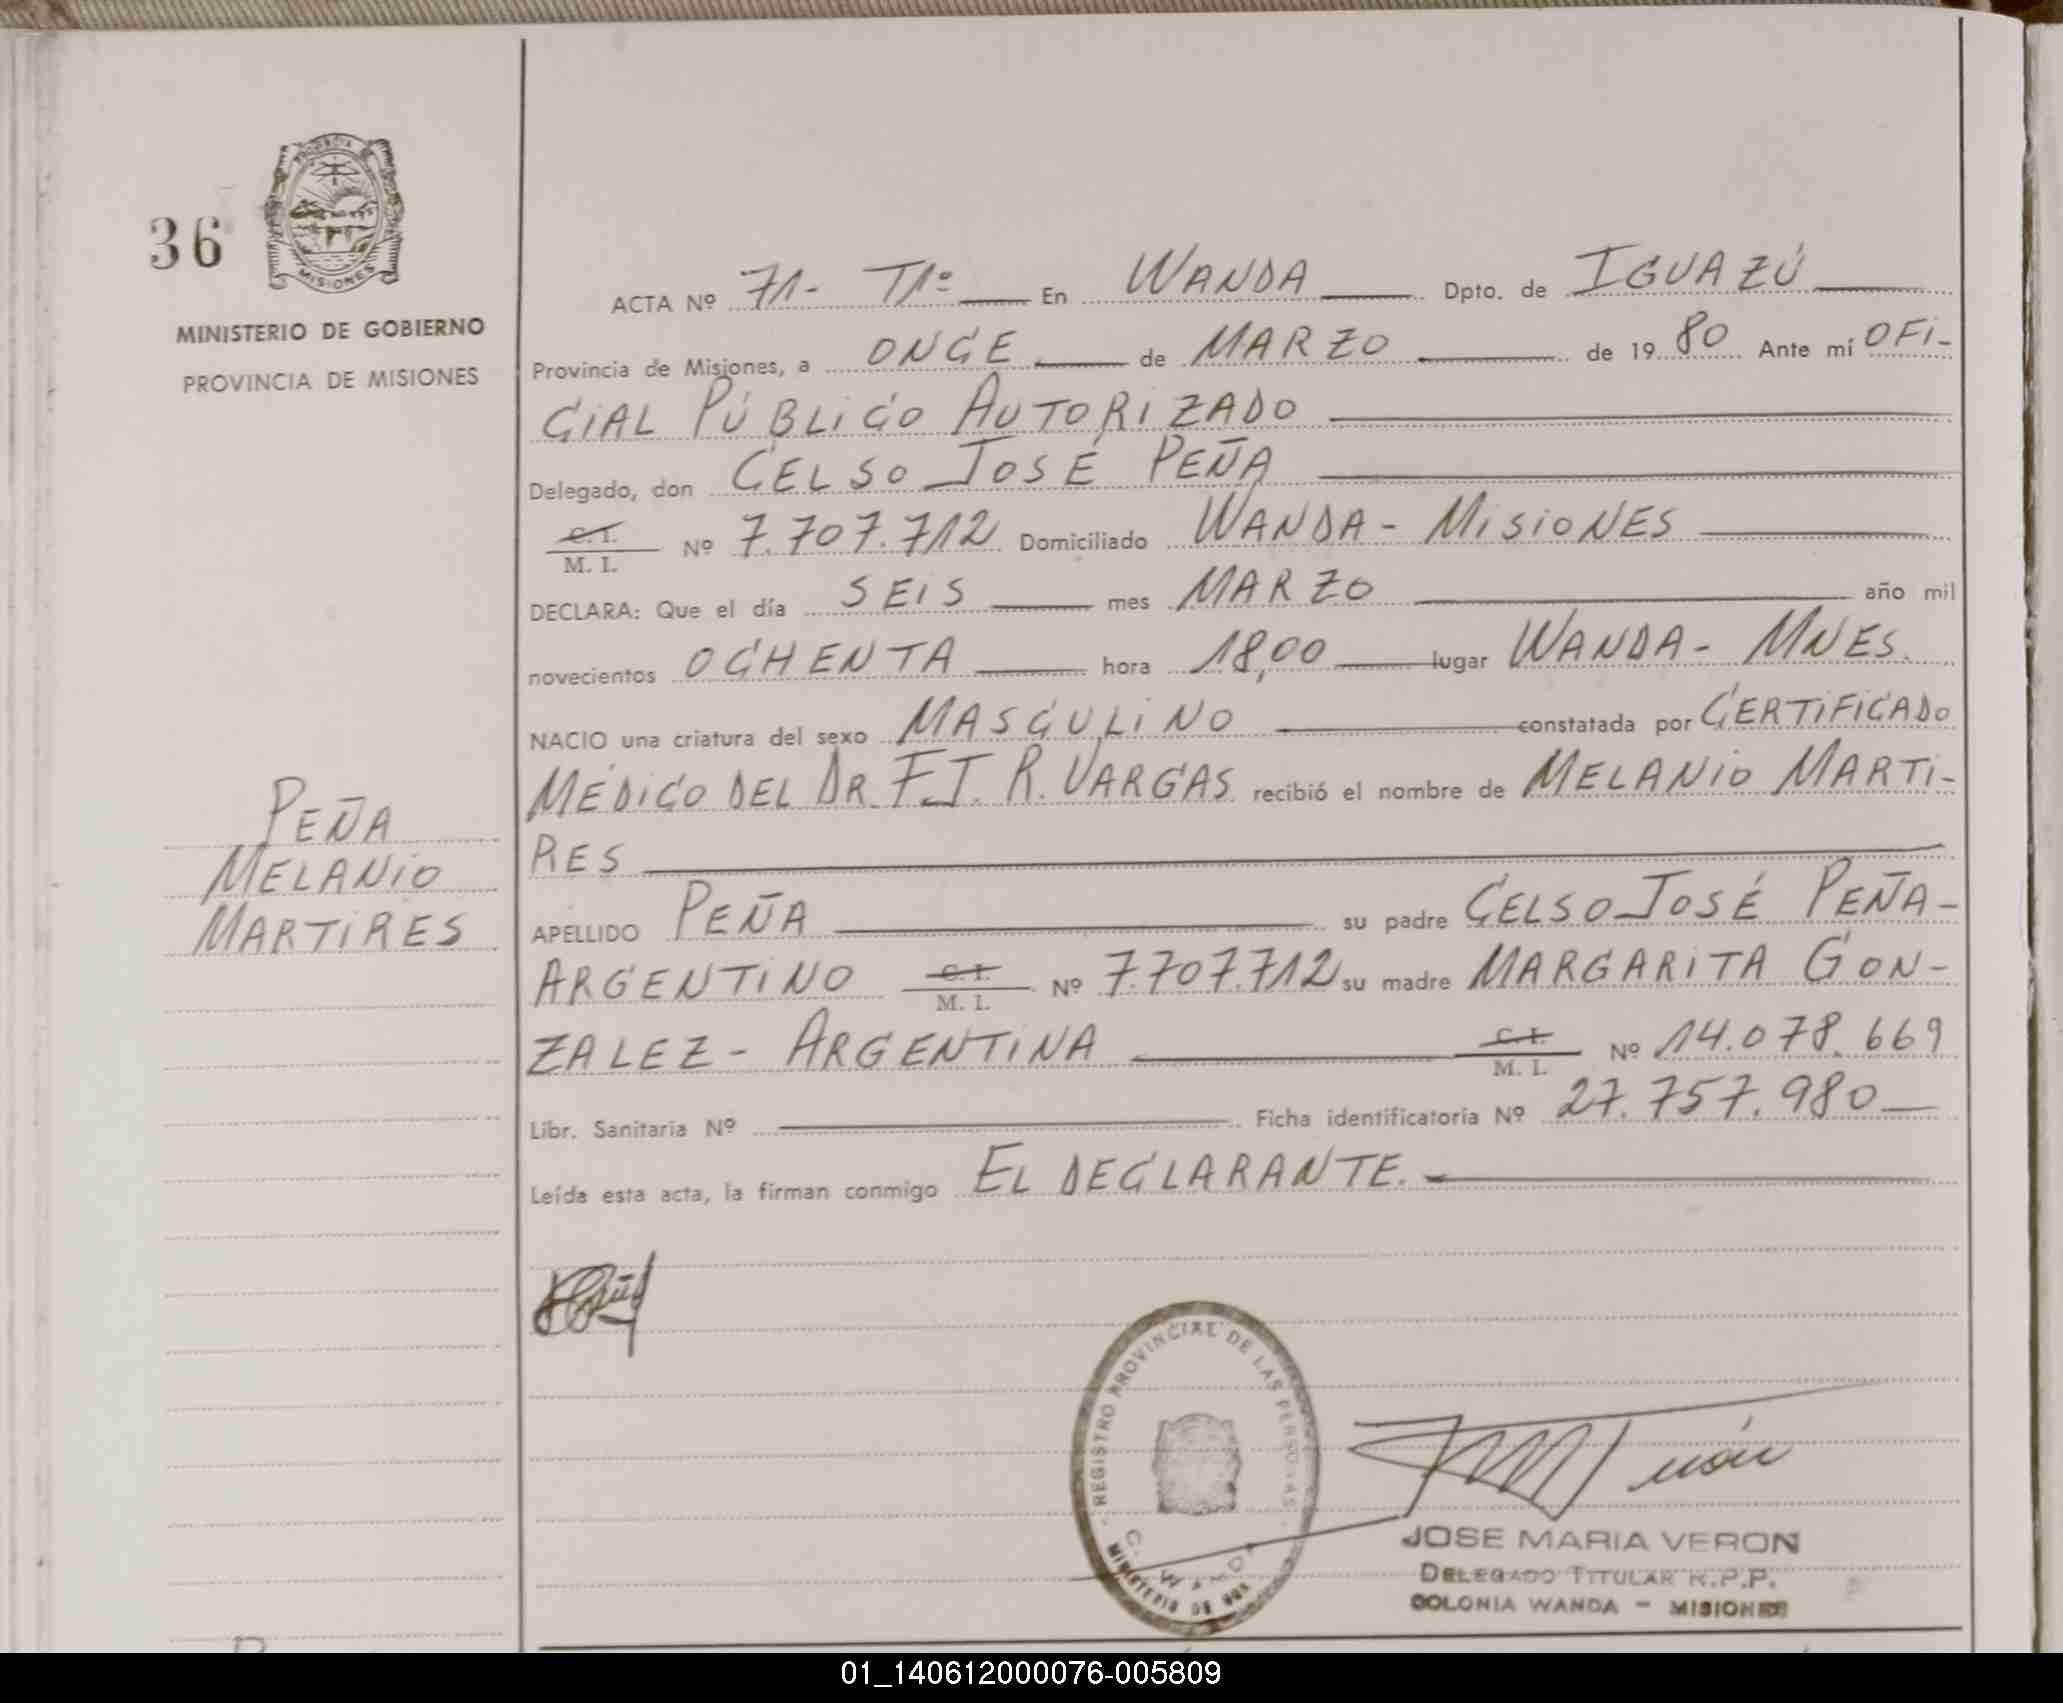 36
PROVINCIA DE
MISIONES
MINISTERIO DE GOBIERNO
PROVINCIA DE MISIONES
PEÑA
MELANIO
MARTIRES
ACTA Nº 71- T1º En WANDA Dpto. de IGUAZÚ
Provincia de Misiones, a ONCE de MARZO de 1980 Ante mí OFI-
CIAL PÚBLICO AUTORIZADO
Delegado, don CELSO JOSÉ PEÑA
C. I.
M. I. Nº 7.707.712 Domiciliado WANDA - MISIONES
DECLARA: Que el día SEIS mes MARZO año mil
novecientos OCHENTA hora 18,00 lugar WANDA - MNES.
NACIO una criatura del sexo MASCULINO constatada por CERTIFICADO
MÉDICO DEL DR. F.J. R. VARGAS recibió el nombre de MELANIO MARTI-
RES
APELLIDO PEÑA su padre CELSO JOSÉ PEÑA-
ARGENTINO C. I. M. I. Nº 7.707.712 su madre MARGARITA GON-
ZALEZ - ARGENTINA C. I. M. I. Nº 14.078.669
Libr. Sanitaria Nº Ficha identificatoria Nº 27.757.980
Leída esta acta, la firman conmigo EL DECLARANTE.-
REGISTRO PROVINCIAL DE LAS PERSONAS
C. WANDA
MINISTERIO DE GOB
JOSE MARIA VERON
DELEGADO TITULAR R.P.P.
COLONIA WANDA - MISIONES
01_140612000076-005809